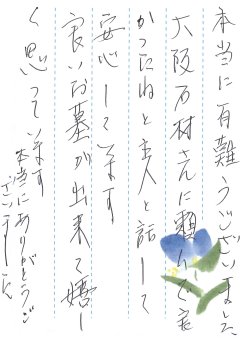 本当に有難うございました
大阪石材さんに頼んで良
かったねと主人と話して
安心しています
良いお墓が出来て嬉し
く思っています
本当にありがとうご
ざいました